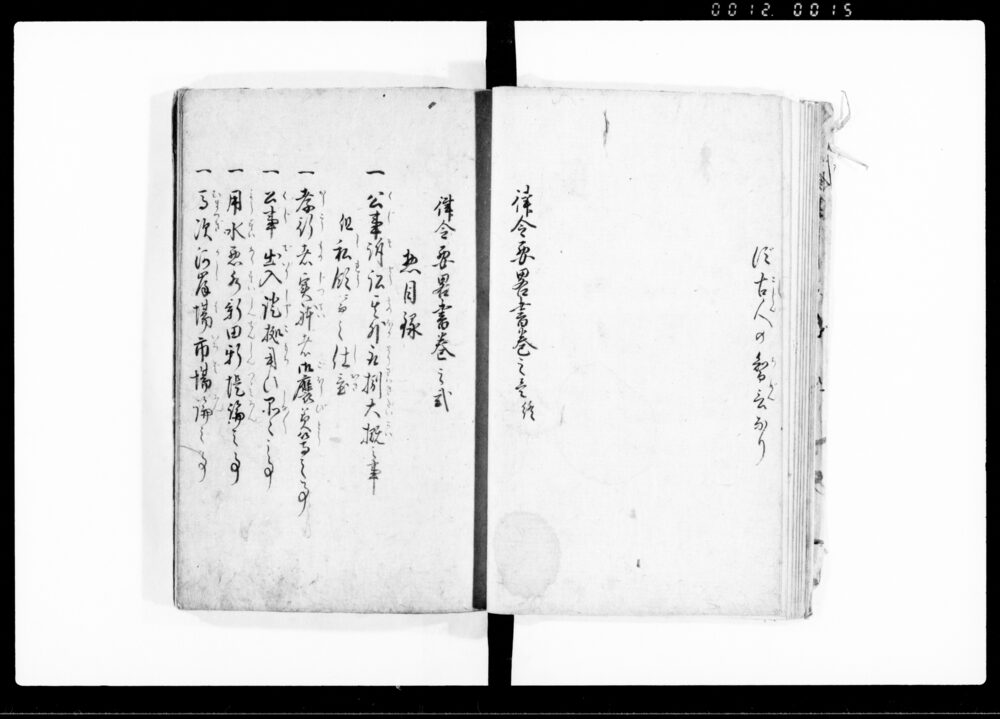 0012. 0015
古人の智言なり
律令要畧書巻之壱終
律令要畧書巻之弐
惣目録
一 公事訴訟其外取捌大概之事
但私領之仕置
一 孝行者実躰者御褒美等之事
一 公事出入証拠用不用之事
一 用水悪水新田新堤論之事
一 馬次河岸場市場論之事